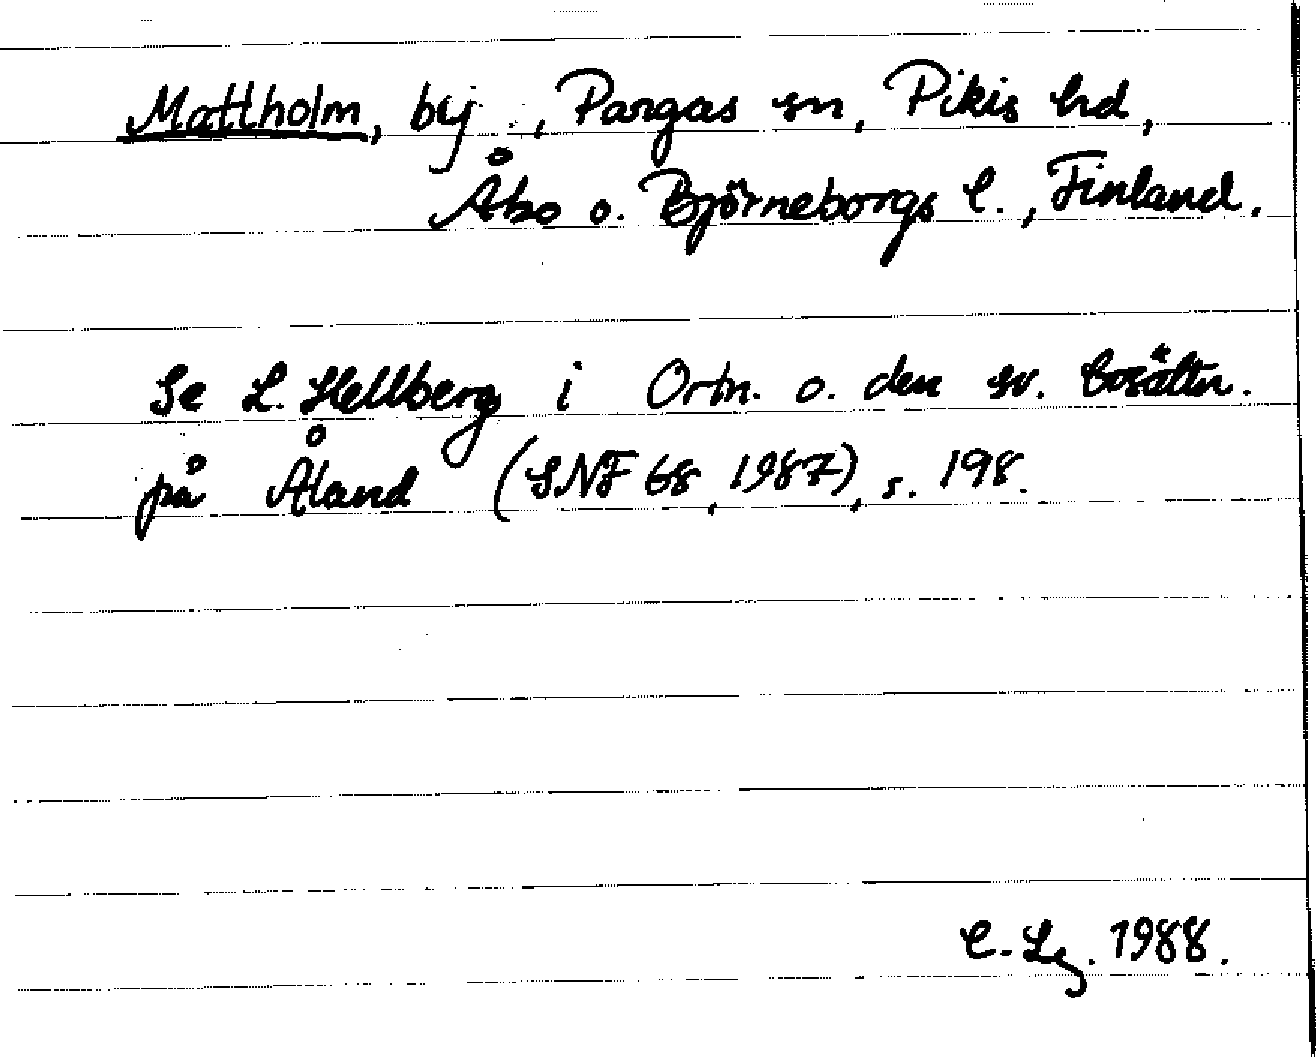 Mattholm, by, Pargas sn, Pikis hd,
Åbo o. Björneborgs l., Finland.
Se L. Hellberg i Ortn. o. den sv. bosättn.
på Åland (SNF 68, 1987), s. 198.
C-Lg. 1988.